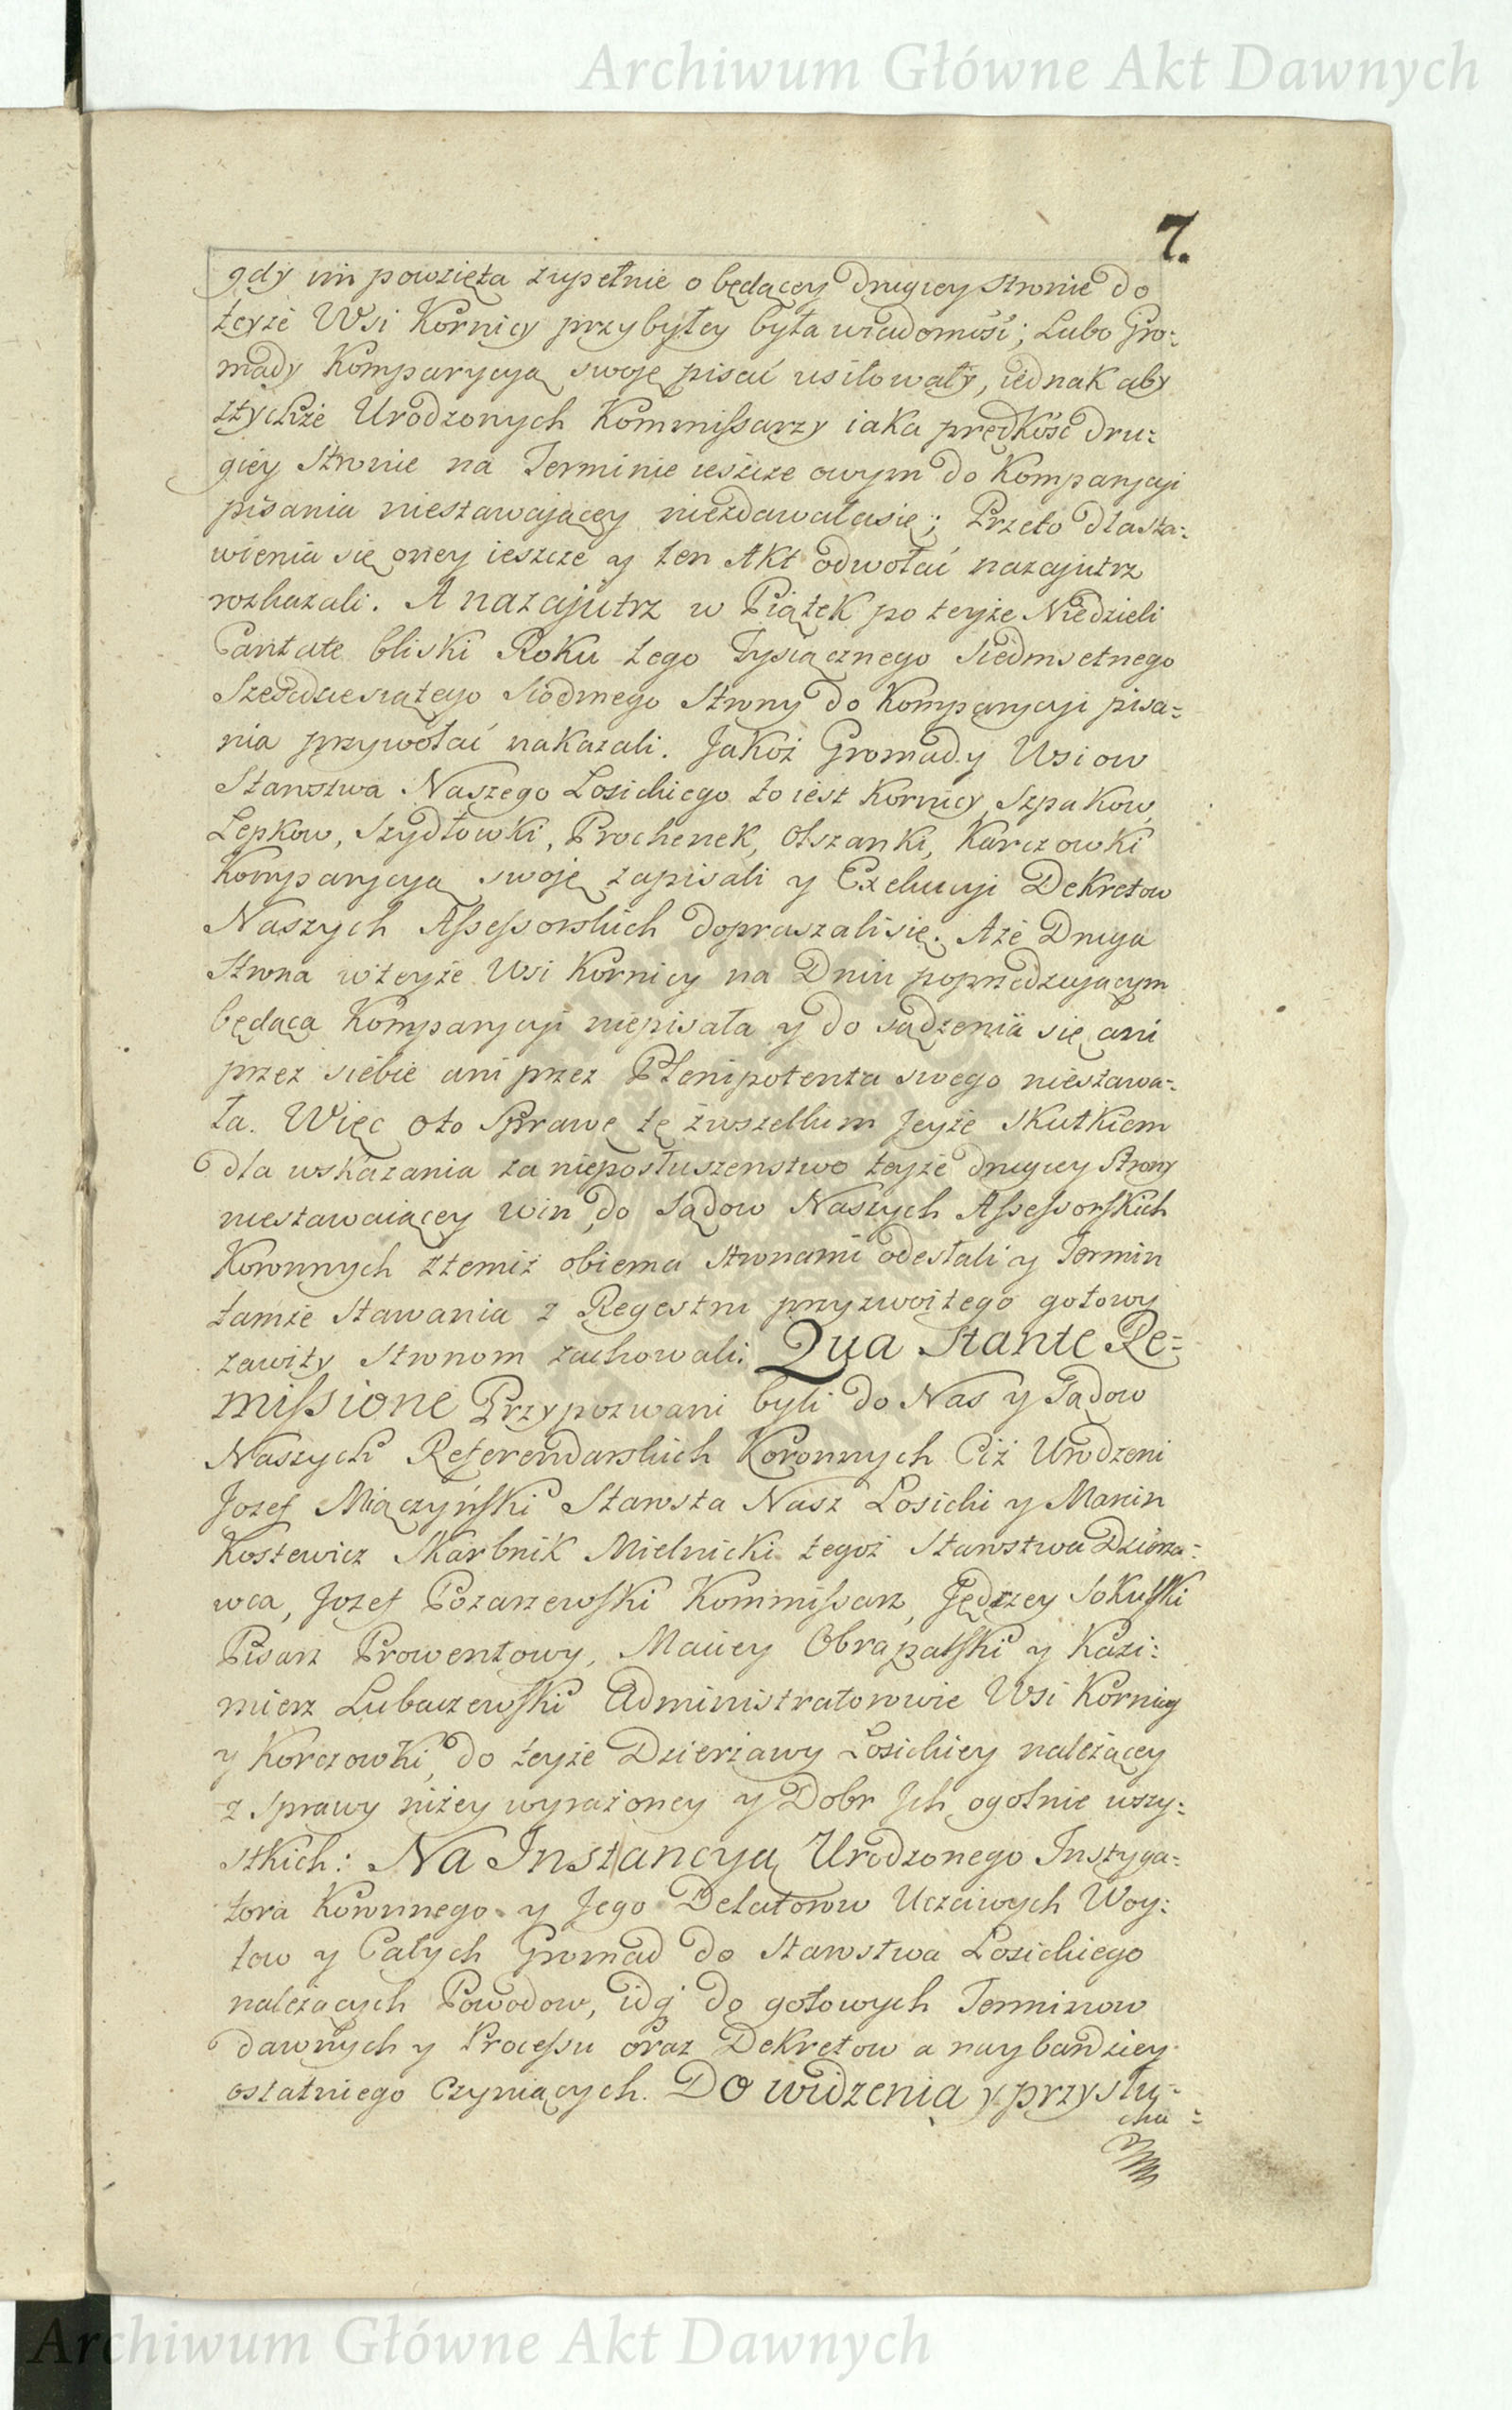 Archiwum Główne Akt Dawnych
7.
gdy im powzięta zupełnie o będącey drugiey stronie do
teyże Wsi Kornicy przybyłey była wiadomość; Lubo Gro-
mady Komparycyą swoię pisać usiłowały, iednak aby
ztychże Urodzonych Kommissarzy iaka prędkość dru-
giey Stronie na Terminie ieszcze owym do Komparycyi
pisania niestawaiącey niezdawałasię; Przeto dla sta-
wienia się oney ieszcze y ten Akt odwołać nazajutrz
rozkazali. A nazajutrz w Piątek po teyże Niedzieli
Cantate bliski Roku tego Tysiącznego Siedmsetnego
Sześćdziesiątego Siodmego Strony do Komparycyi pisa-
nia przywołać nakazali. Jakoż Gromady Wsiow
Starostwa Naszego Łosickiego to iest Kornicy, Szpakow,
Lepkow, Szydłowki, Prochenek, Olszanki, Karczowki
Komparycyą swoię zapisali y Exekucyi Dekretow
Naszych Assessorskich dopraszalisię. Aże Druga
Strona wteyże Wsi Kornicy na Dniu poprzedzującym
będąca Komparycyi niepisała y do sądzenia się ani
przez siebie ani przez Plenipotenta swego niestawa-
ła. Więc oto Sprawę tę zwszelkim Jeyże skutkiem
dla wskazania za nieposłuszenstwo teyże drugiey Strony
niestawaiącey win, do Sądow Naszych Assessorskich
Koronnych ztemiż obiema stronami odesłali y Termin
tamże stawania z Regestru przyzwoitego gotowy
zawity Stronom zachowali. Qua Stante Re-
missione Przypozwani byli do Nas y Sądow
Naszych Referendarskich Koronnych Ciż Urodzeni
Jozef Miączyński Starosta Nasz Łosicki y Marcin
Kostewicz Skarbnik Mielnicki tegoż Starostwa Dzierża-
wca, Jozef Pozarzewski Kommissarz, Jędrzey Sokulski
Pisarz Prowentowy, Maciey Obrapalski y Kazi-
mierz Lubaczewski Administratorowie Wsi Kornicy
y Korczowki, do teyże Dzierżawy Łosickiey należącey
z sprawy niżey wyrażoney y Dobr Jch ogolnie wszy-
stkich: Na Instancyą Urodzonego Instyga-
tora Koronnego y Jego Delatorow Uczciwych Woy-
tow y Całych Gromad do Starostwa Łosickiego
należących Powodow, idą do gotowych Terminow
dawnych y Processu oraz Dekretow a naybardziey
ostatniego Czyniących. Do widzenia y przysłu-
cha-
Archiwum Główne Akt Dawnych